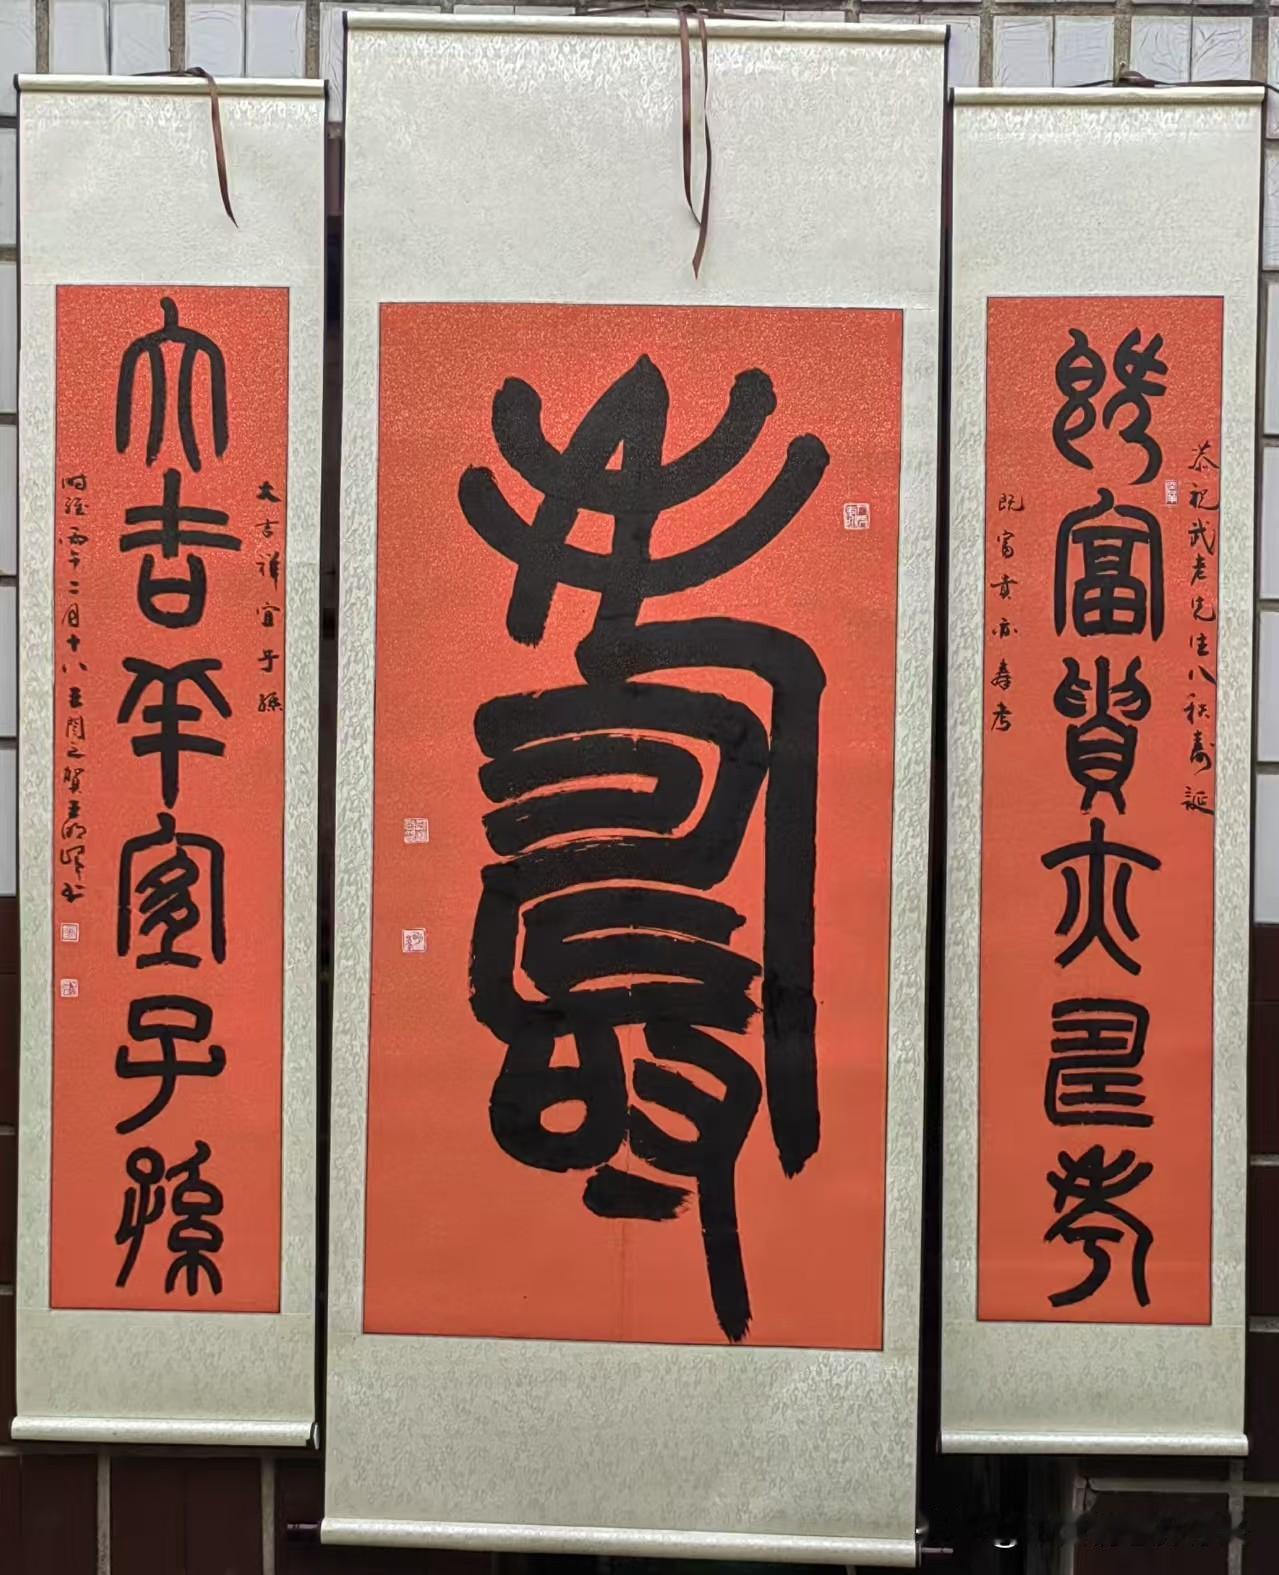 恭祝武老先生八秩寿誕
既富貴亦壽考
既富貴亦寿考
壽
大吉祥宜子孫
大吉羊宜子孫
时維丙午二月十八